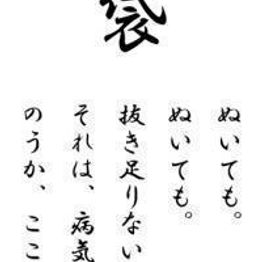 袋
ぬいても。
ぬいても。
抜き足りない
それは、病気
のうか、ここ